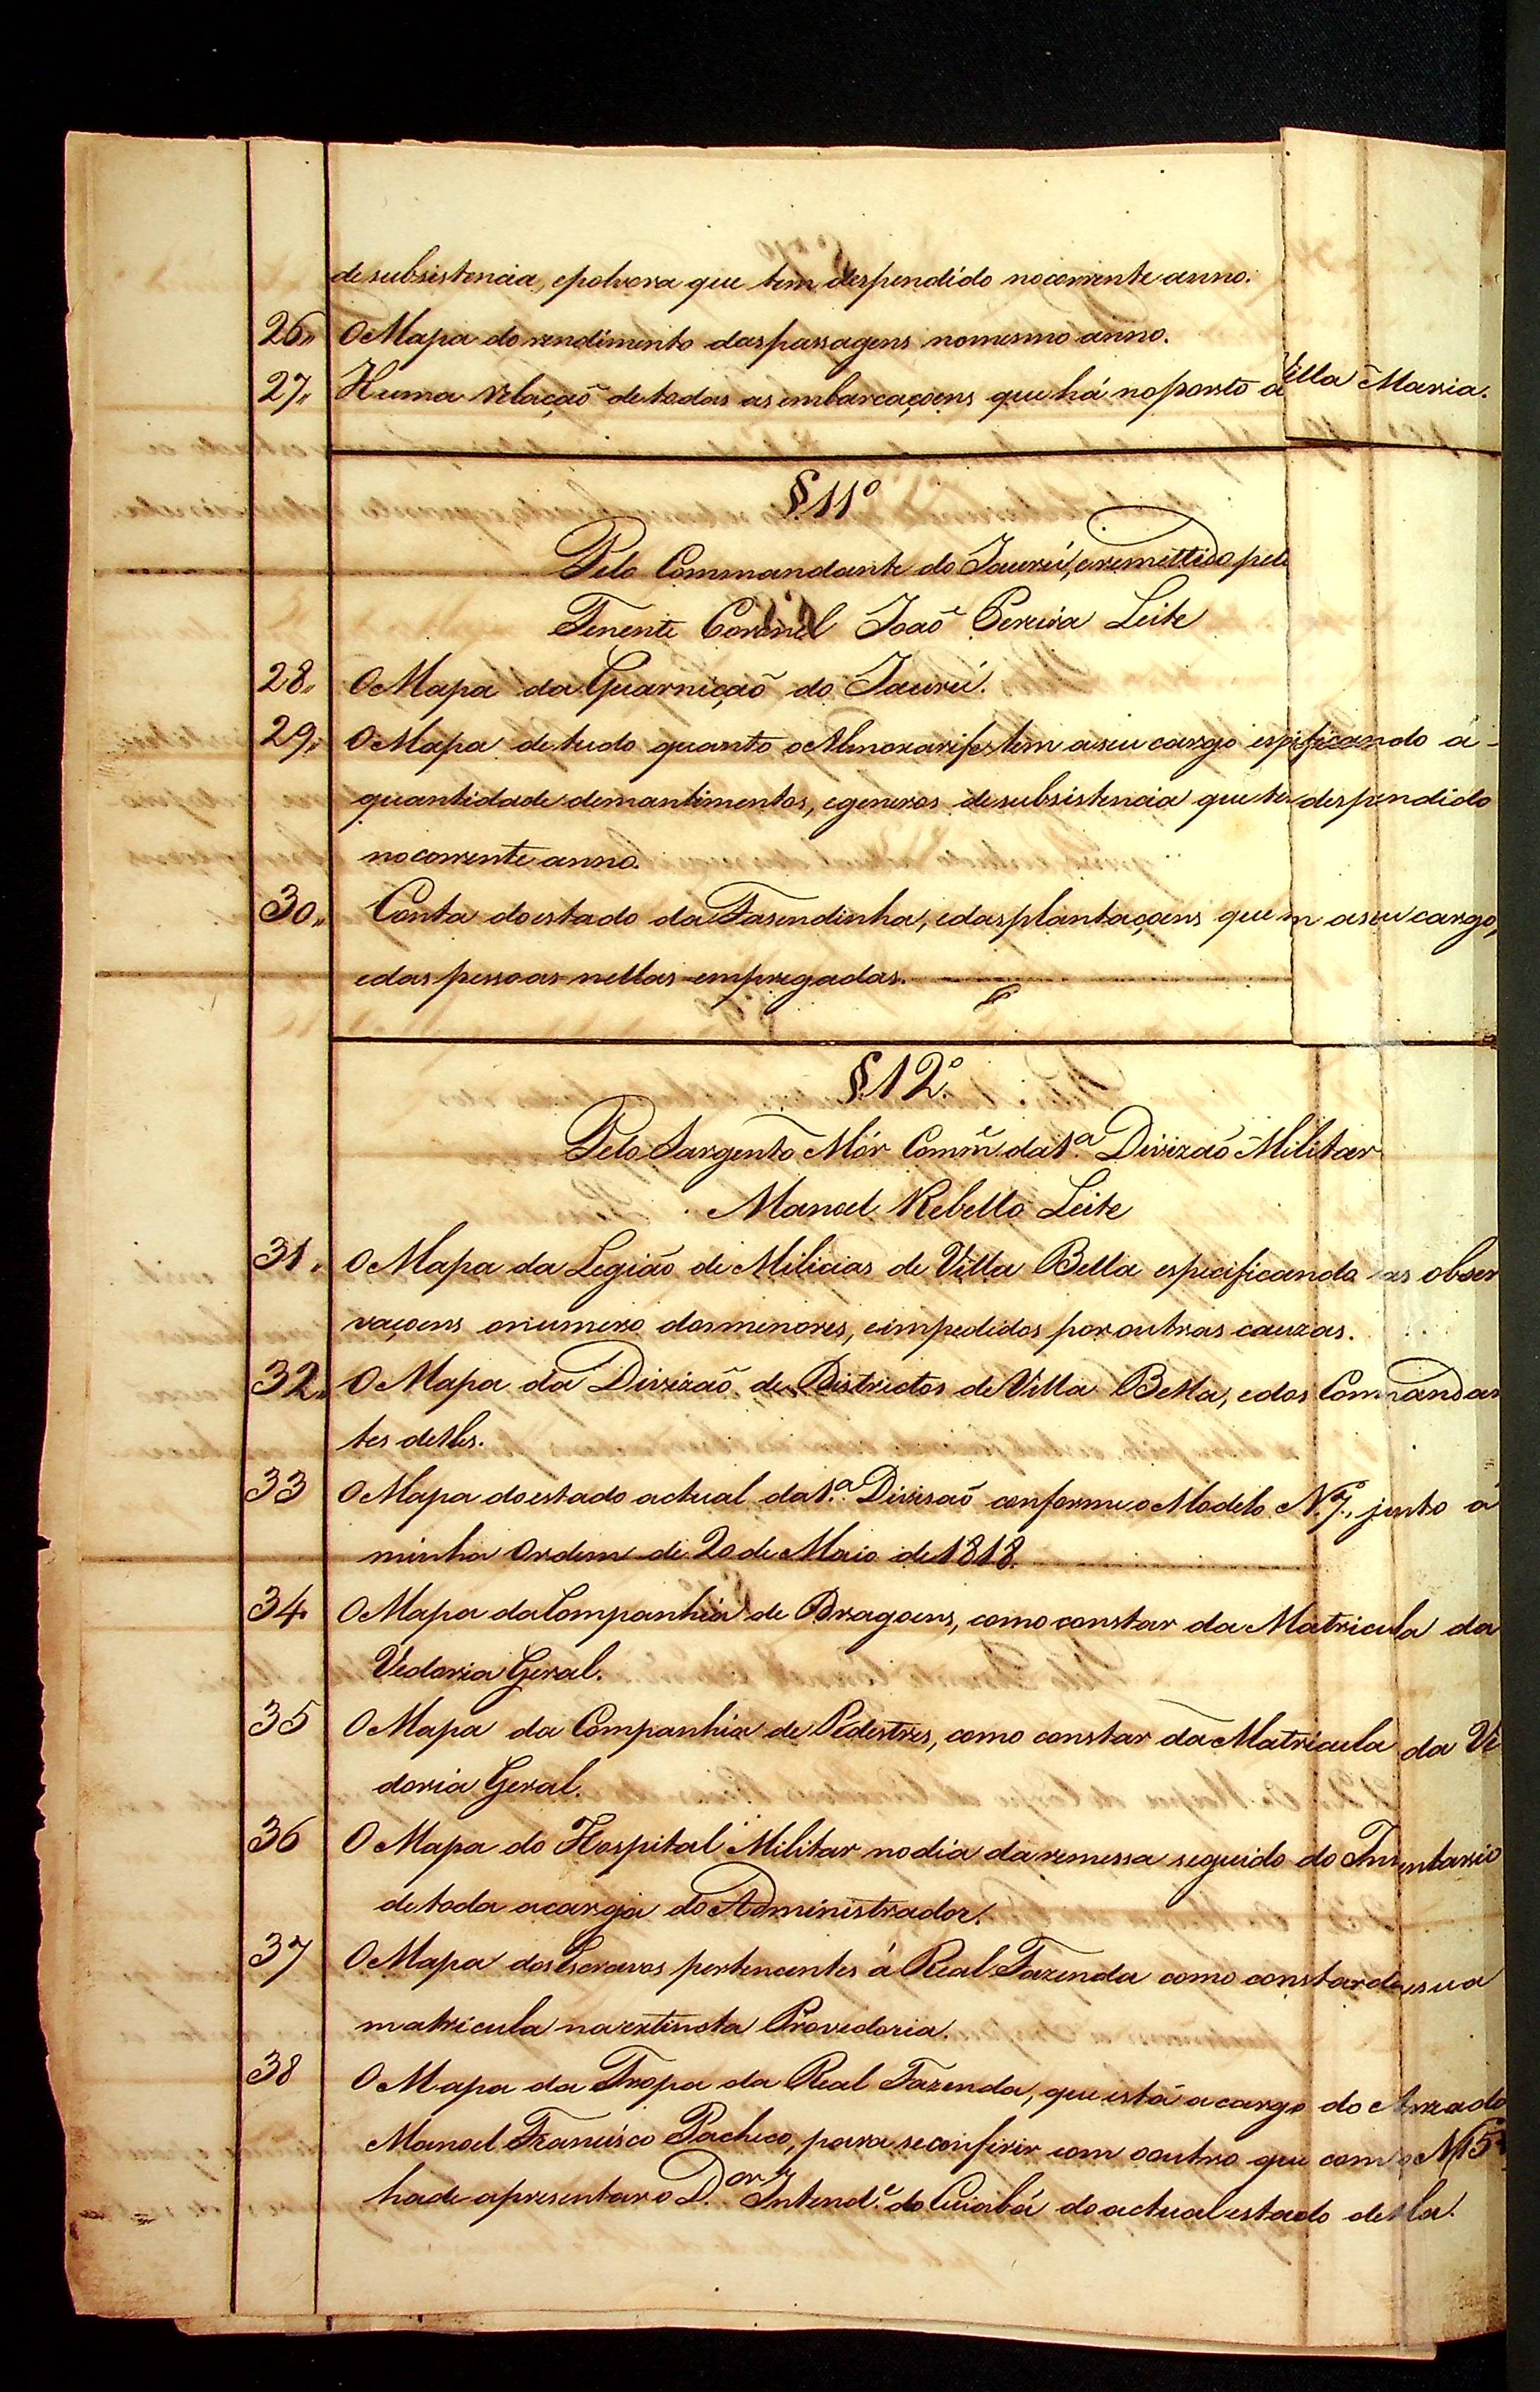 de subsistencia, e polvora que tem despendido no corrente anno.
26,, O Mapa do rendimento das passagens no mesmo anno.
27,, Huma relação de todas as embarcaçoens que há no porto d Villa Maria.
§ 11º
Pelo Commandante do Jaurú, e remettido pelo
Tenente Coronel Joaõ Pereira Leite
28,, O Mapa da Guarniçaõ do Jaurú.
29,, O Mapa de tudo quanto o Almoxarife tem a seu cargo espificando a-
quantidade de mantimentos, e generos de subsistencia que te despendido
no corrente anno.
30,, Conta do estado da Fasendinha, e das plantaçoens que m a seu cargo,
e das pessoas nellas empregadas.
§ 12º
Pelo Sargento Mór Comm.e da 1.ª Divizaõ Militar
Manoel Rebello Leite
31,, O Mapa da Legiaõ de Milicias de Villa Bella especificando as obser
vaçoens o numero dos menores, e impedidos por outras cauzas.
32,, O Mapa da Divizaõ de Districtos de Villa Bella, e dos Commandan
tes delles.
33 O Mapa do estado actual da 1.ª Divisaõ conforme o Modelo N.º 7., junto á
minha Ordem de 20 de Maio de 1818.
34. O Mapa da Companhia de Dragoens, como constar da Matricula da
Vedoria Geral.
35 O Mapa da Companhia de Pedestres, como constar da Matricula da Ve
doria Geral.
36 O Mapa do Hospital Militar no dia da remessa seguido do Inventario
de toda a carga do Administrador.
37 O Mapa dos Escravos pertencentes á Real Fazenda como constar de sua
matricula na extincta Provedoria.
38 O Mapa da Tropa da Real Fazenda, que está a cargo do
Manoel Francisco Pacheco, para se conferir com o outro que com o N. 15
hade apresentar o D.or Intend.e do Cuiabá do actual estado della.